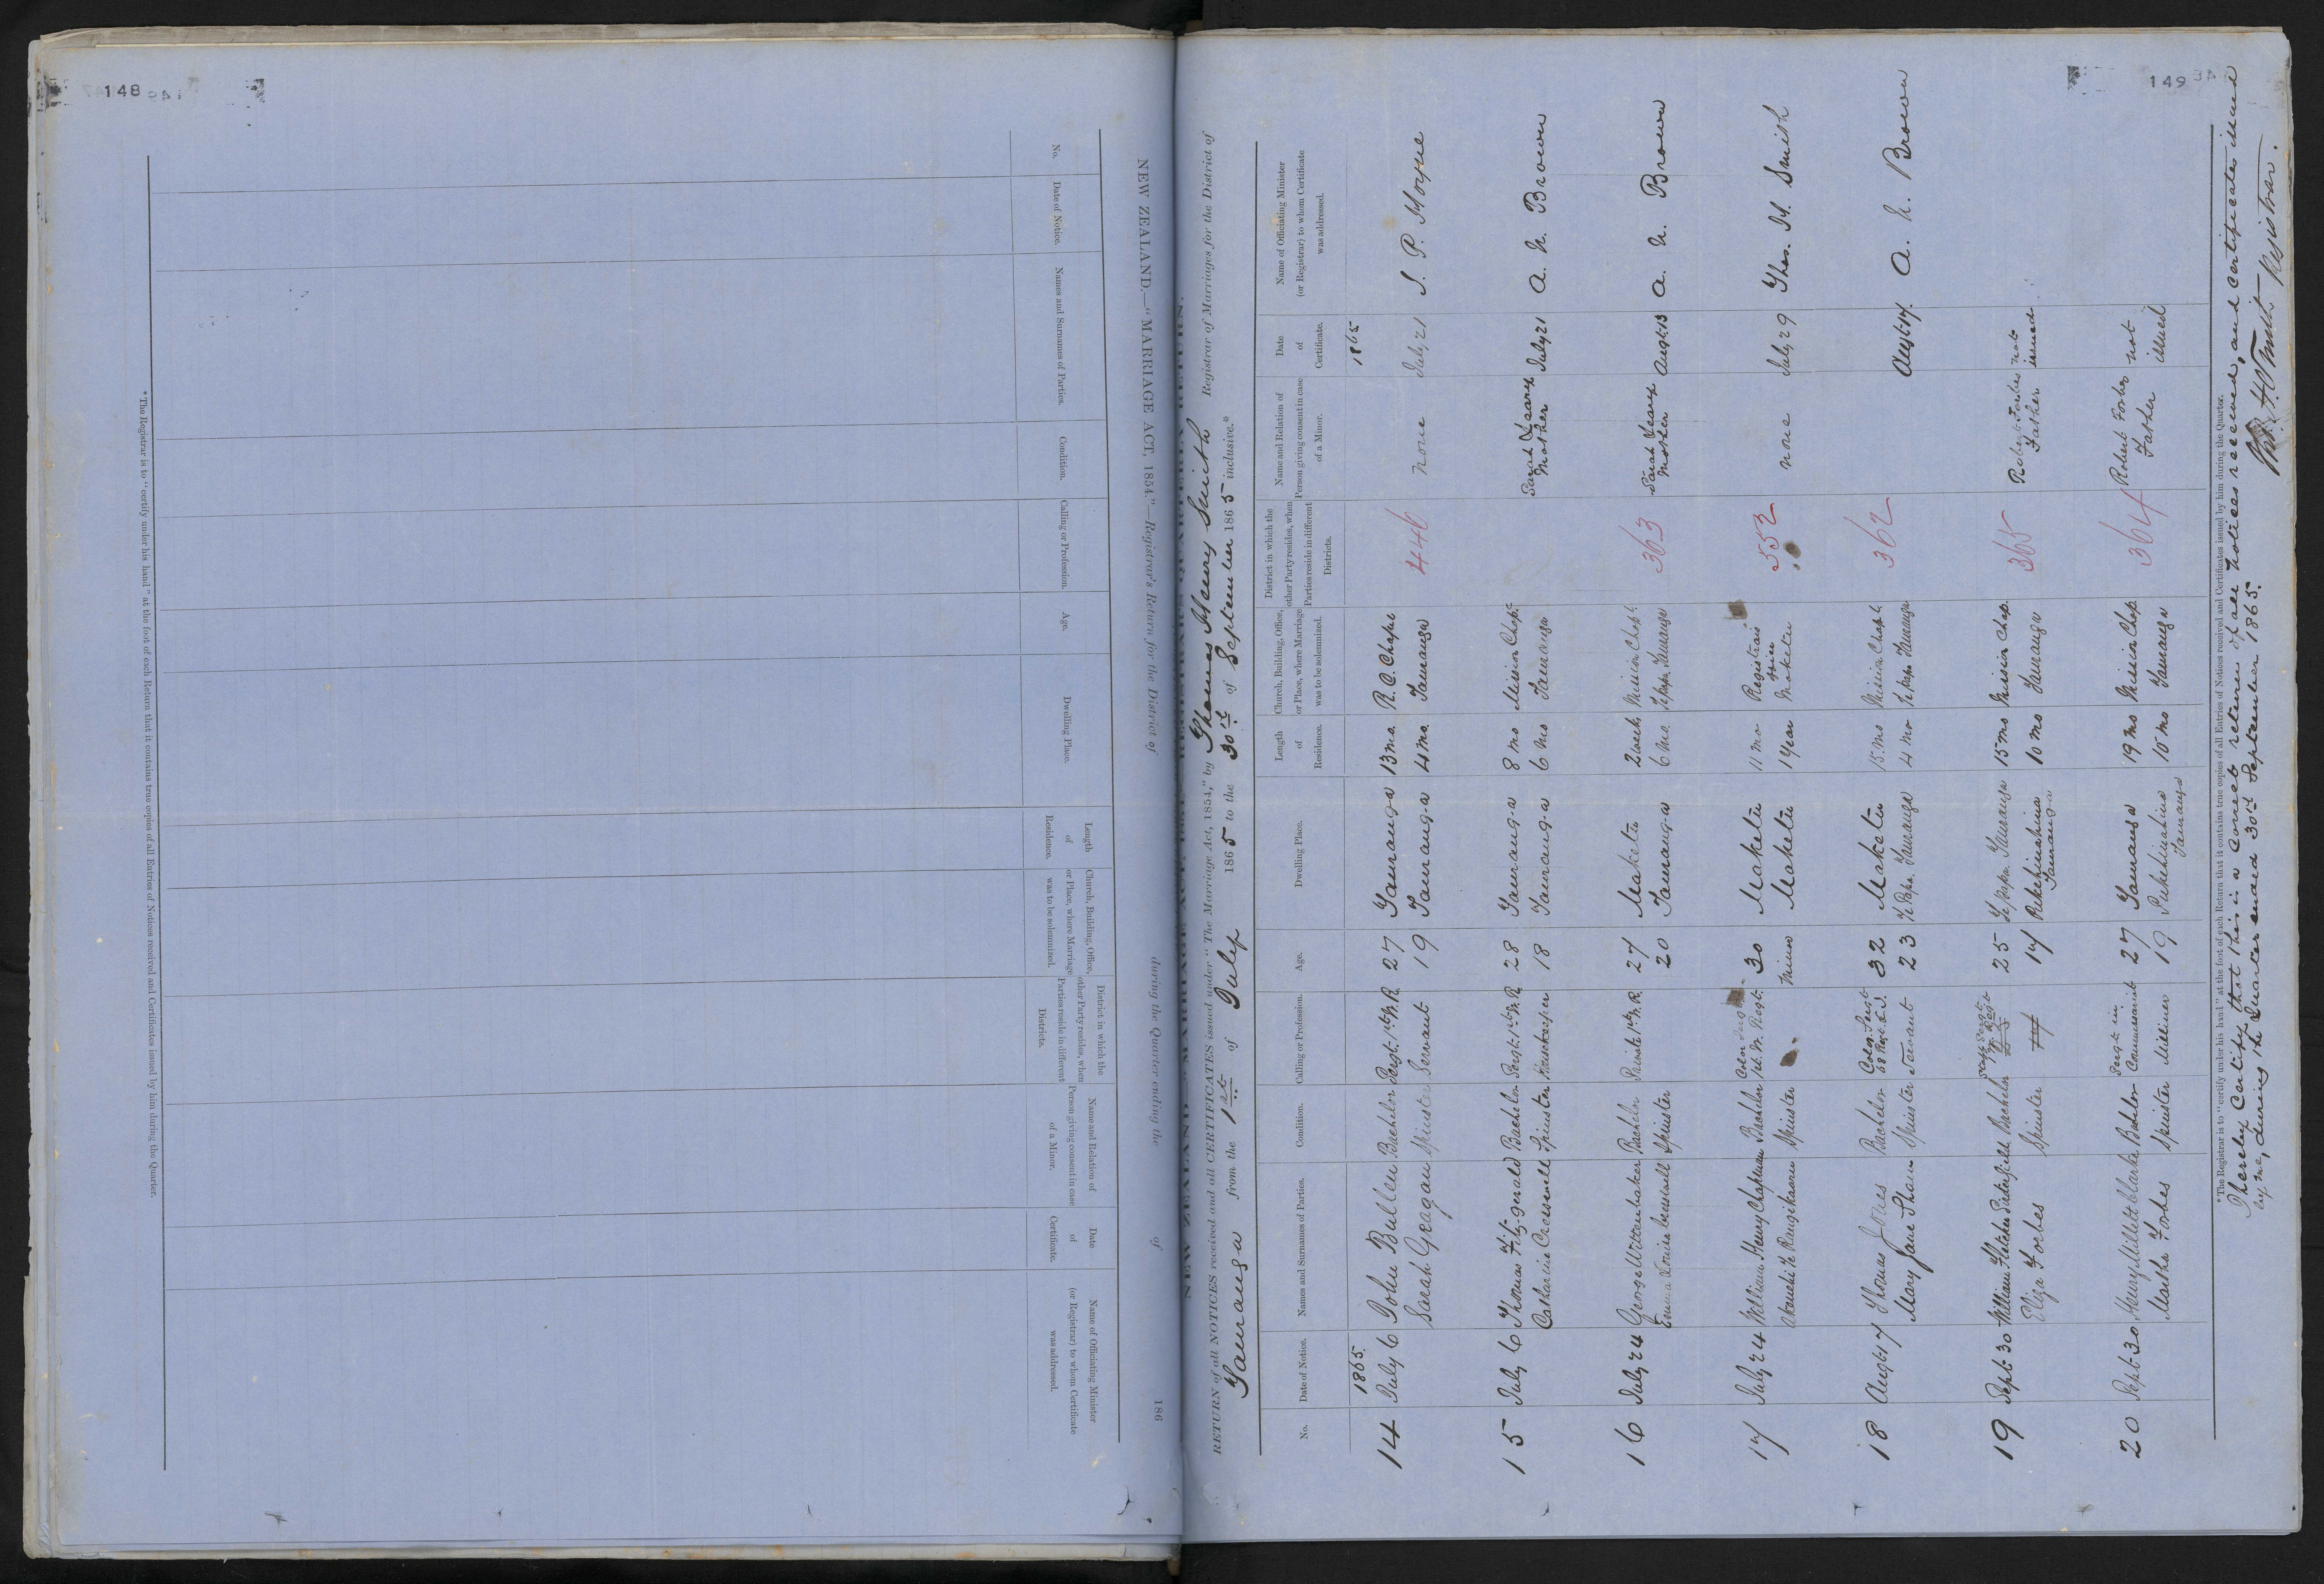 148
NEW ZEALAND.—"MARRIAGE ACT, 1854."—Registrar's Return for the District of during the Quarter ending the of 186
No.
Date of Notice.
Names and Surnames of Parties.
Condition.
Calling or Profession.
Age.
Dwelling Place.
Length of Residence.
Church, Building, Office, or Place, where Marriage was to be solemnized.
District in which the other Party resides, when Parties reside in different Districts.
Name and Relation of Person giving consent in case of a Minor.
Date of Certificate.
Name of Officiating Minister (or Registrar) to whom Certificate was addressed.
*The Registrar is to "certify under his hand" at the foot of each Return that it contains true copies of all Entries of Notices received and Certificates issued by him during the Quarter.
149
RETURN of all NOTICES received and all CERTIFICATES issued under "The Marriage Act, 1854," by Thomas Henry Smith Registrar of Marriages for the District of
Tauranga from the 1st of July 1865 to the 30th of September 1865 inclusive.*
No.
Date of Notice.
Names and Surnames of Parties.
Condition.
Calling or Profession.
Age.
Dwelling Place.
Length of Residence.
Church, Building, Office, or Place, where Marriage was to be solemnized.
District in which the other Party resides, when Parties reside in different Districts.
Name and Relation of Person giving consent in case of a Minor.
Date of Certificate.
Name of Officiating Minister (or Registrar) to whom Certificate was addressed.
1865 1865
14 July 6 John Bullen Bachelor Sergt. 1st W. R. 27 Tauranga 13 mo. R. C. Chapel 446 none July 21 J. P.
Sarah Geagan Spinster Servant 19 Tauranga 4 mo. Tauranga
15 July 6 Thomas Fitzgerald Bachelor Sergt. 1st W. R. 28 Tauranga 8 mo Mission Chap. Sarah July 21 A. N. Brown
Catharine Cresswell Spinster Housekeeper 18 Tauranga 6 mo Tauranga Mother
16 July 24 George Wittenhaker Bachelor Private 1st W. R. 27 Maketu 2 week Mission Chapl. 363 Sarah August 13 A. N. Brown
Emma Louisa Cresswell Spinster 20 Tauranga 6 mo. Te Papa, Tauranga Mother
17 July 24 William Henry Chapman Bachelor Color Sergt. 1st. W. Regt. 30 Maketu 11 mo Registrars Office 552 none July 29 Thos. H. Smith
Te Rangikaaru Spinster Minor Maketu 1 year Maketu
18 August 7 Thomas Jones Bachelor Color. Sergt. 68 Regt. L.I. 32 Maketu 15 mo Mission Chapl. 362 August 17. A. N. Brown
Mary Jane Shaw Spinster Servant 23 Te Papa, Tauranga 4 mo Te Papa Tauranga
19 Sept 30 William Fletcher Bachelor 25 Te Papa Tauranga 15 mo Mission Chap. 365 Robert Forbes not issued
Eliza Forbes Spinster 17 Tauranga 10 mo Tauranga Father
20 Sept 30 Henry Millett Clarke Bachelor Sergt in Commissariat 27 Tauranga 19 mo Mission Chap. 364 Robert Forbes not issued
Martha Forbes Spinster Milliner 19 Pukehinahina Tauranga 10 mo Tauranga Father
*The Registrar is to "certify under his hand" at the foot of each Return that it contains true copies of all Entries of Notices received and Certificates issued by him during the Quarter.
I hereby Certify that this is a correct return of all notices received, and certificates issued
by me, during the Quarter ended 30th September 1865.
Registrar.